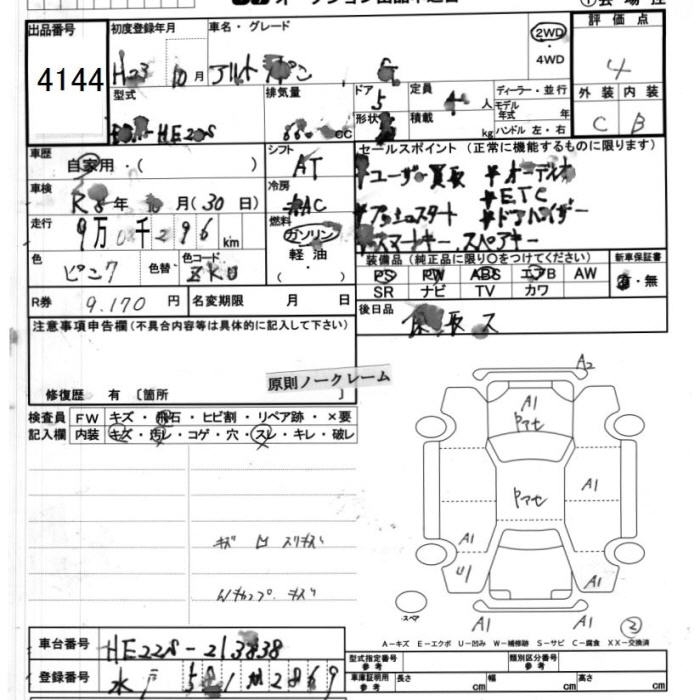 出品番号 初度登録年月 車名・グレード 2WD・4WD 評価点
4144 H23 10月 アルト ラパン G 4
型式 排気量 ドア 5 定員 4人 ディーラー・並行 外装 内装
HE22S 660 CC 形状 積載 kg モデル年式 年 ハンドル 左・右 C B
車歴 自家用・( ) シフト AT セールスポイント (正常に機能するものに限ります)
車検 R5年 月(30日) 冷房 AAC ユーザー買取 オーディオ
ETC
プッシュスタート ドアバイザー
走行 9万 千296km 燃料 ガソリン・軽油・( ) スマートキー.スペアキー
色 ピンク 色替 色コード ZKU 装備品 (純正品に限り○をつけてください) 新車保証書
PS PW ABS エアB AW 有・無
SR ナビ TV カワ
R券 9.170円 名変期限 月 日 後日品
注意事項申告欄(不具合内容等は具体的に記入して下さい)
原則ノークレーム
修復歴 有 [箇所 ]
検査員記入欄 FW キズ・飛石・ヒビ割・リペア跡・×要
内装 キズ・汚レ・コゲ・穴・スレ・キレ・破レ
A2
A1
ヤマセ
ヤマセ A1
A1
U1 A1
A1 A1 ②
スペア
キズ 凹 スリキズ
キズ
A-キズ E-エクボ U-凹み W-補修跡 S-サビ C-腐食 XX-交換済
車台番号 HE22S-213838
型式指定番号 参考 類別区分番号 参考
登録番号 水戸 581 2869
車庫証明用 参考 長さ cm 幅 cm 高さ cm